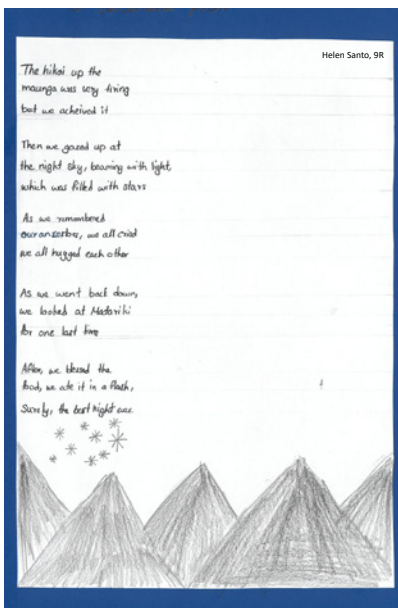 Helen Santo, 9R
The hikoi up the
maunga was very tiring
but we acheived it
Then we gazed up at
the night sky, beaming with light,
which was filled with stars
As we remembered
our ansestors, we all cried
we all hugged each other
As we went back down,
we looked at Matariki
for one last time
After, we blessed the
food, we ate it in a flash,
Surely, the best night ever.